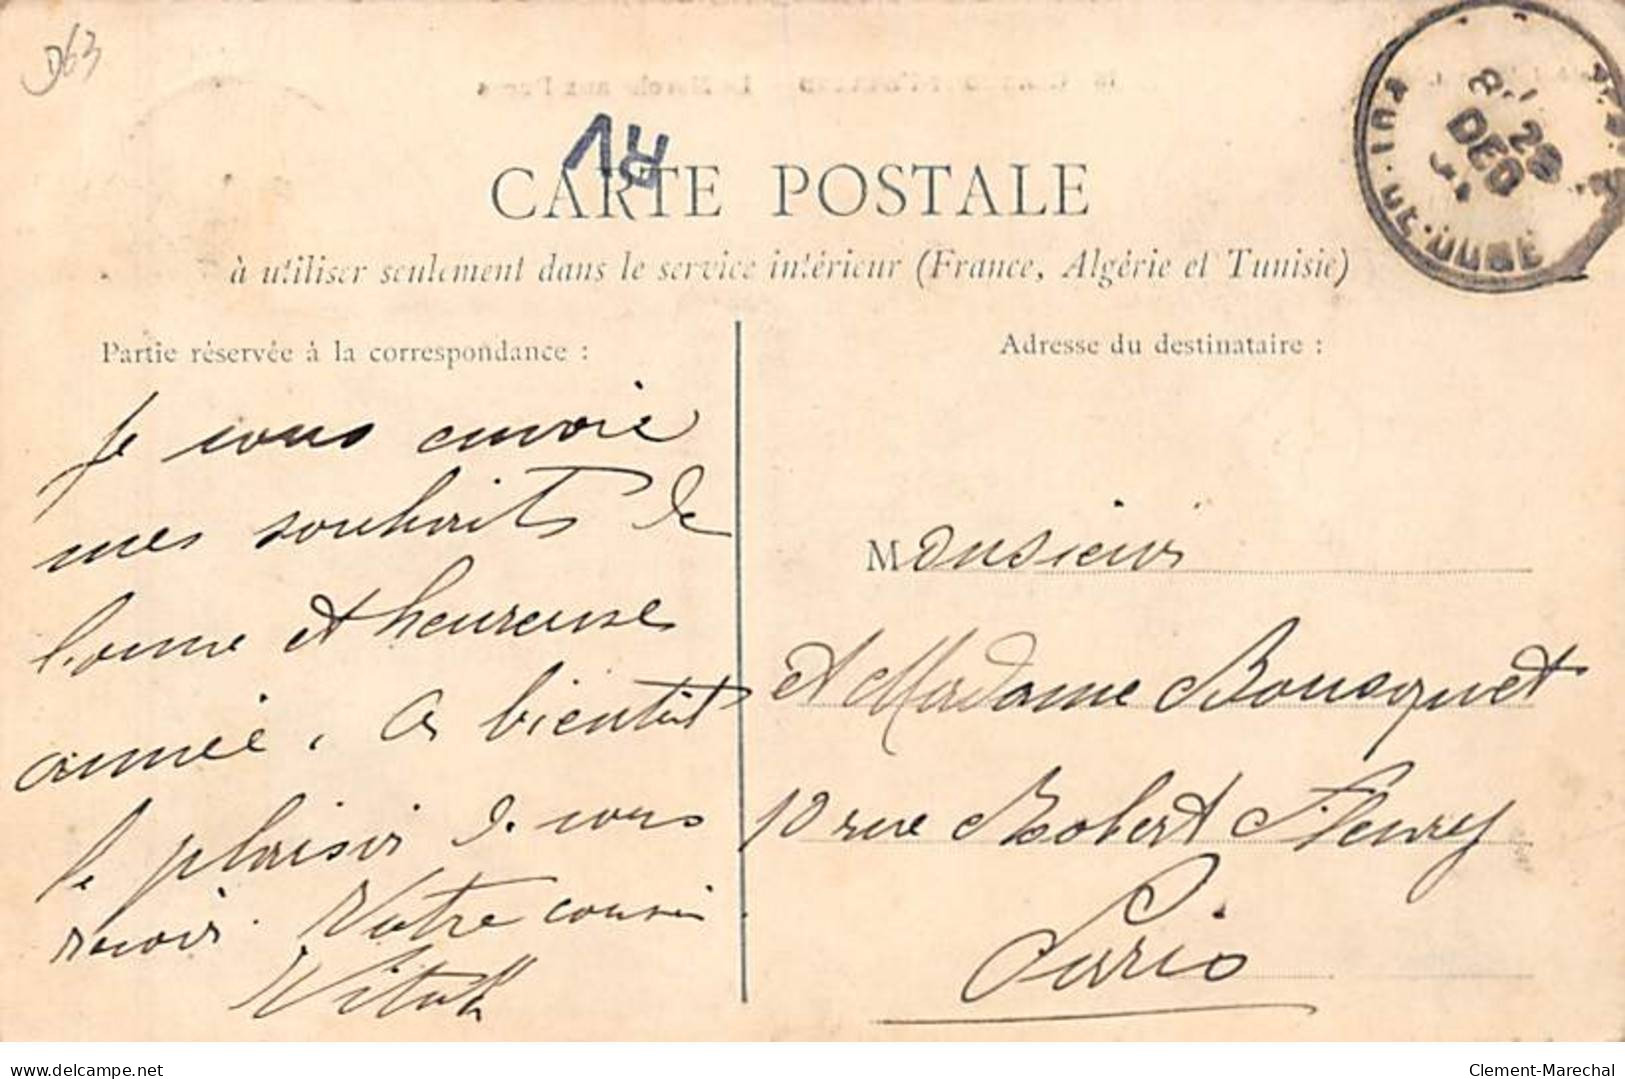 D63
CARTE POSTALE
à utiliser seulement dans le service intérieur (France, Algérie et Tunisie)
PUY-DE-DOME
28
DEC
Partie réservée à la correspondance :
Je vous envoie
mes souhaits de
bonne et heureuse
année. A bientôt
le plaisir de vous
revoir. Votre cousin
Adresse du destinataire :
Monsieur
et Madame Bousquet
10 rue Robert Fleury
Paris
www.delcampe.net
Clement-Marechal